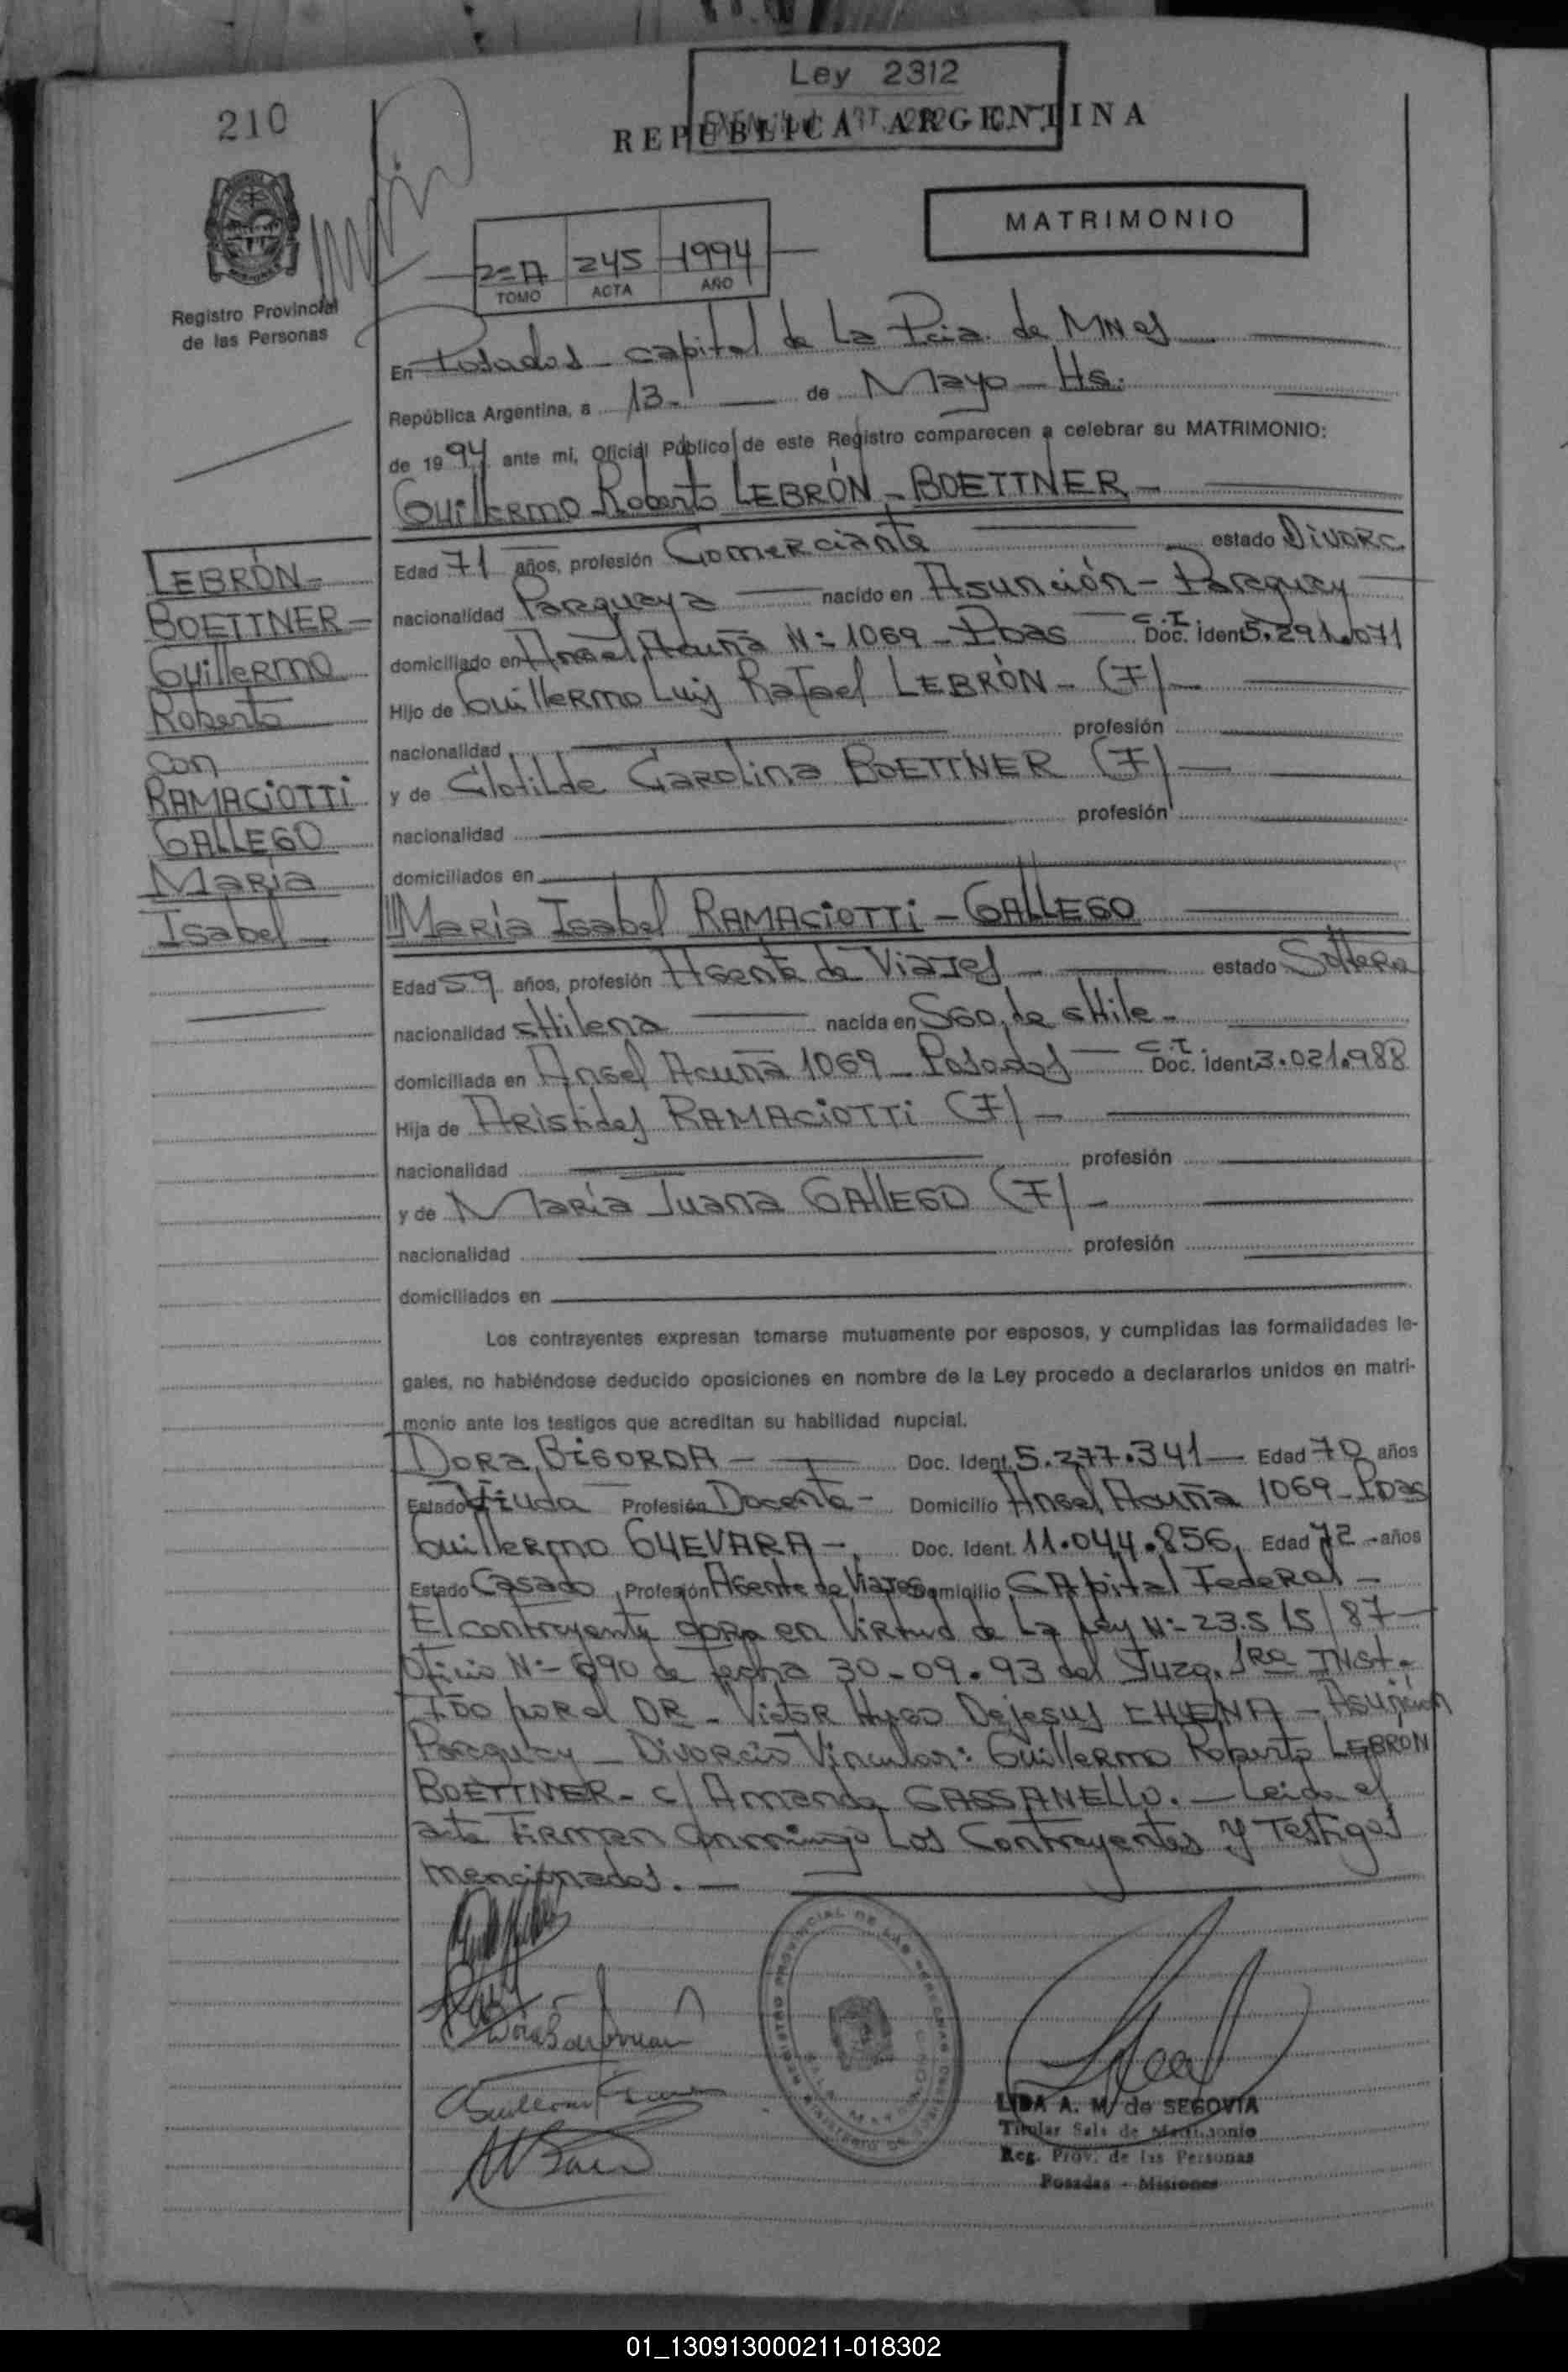 Ley 2312
210
REPUBLICA ARGENTINA
MATRIMONIO
2=A 245 1994
TOMO ACTA AÑO
Registro Provincial
de las Personas
En Posadas - capital de La Pcia. de MNes
República Argentina, a 13- de Mayo - Hs.
de 1994 ante mi, Oficial Público de este Registro comparecen a celebrar su MATRIMONIO:
Guillermo Roberto LEBRÓN - BOETTNER -
LEBRÓN -
BOETTNER -
Guillermo
Roberto
con
RAMACIOTTI
GALLEGO
María
Isabel -
Edad 71 años, profesión Comerciante estado Divorc
nacionalidad Paraguaya nacido en Asunción - Paraguay
domiciliado en Angel Acuña N= 1069 - Pdas C.I. Doc. Ident 5.291.071
Hijo de Guillermo Luis Rafael LEBRÓN - (F) -
nacionalidad profesión
y de Clotilde Carolina BOETTNER (F) -
nacionalidad profesión
domiciliados en
María Isabel RAMACIOTTI - GALLEGO
Edad 59 años, profesión Agente de Viajes - estado Soltera
nacionalidad cHilena nacida en Sgo. de cHile -
domiciliada en Angel Acuña 1069 - Posadas C.I. Doc. Ident. 3.021.988
Hija de Aristides RAMACIOTTI (F) -
nacionalidad profesión
y de María Juana GALLEGO (F) -
nacionalidad profesión
domiciliados en
Los contrayentes expresan tomarse mutuamente por esposos, y cumplidas las formalidades le-
gales, no habiéndose deducido oposiciones en nombre de la Ley procedo a declararlos unidos en matri-
monio ante los testigos que acreditan su habilidad nupcial.
DORA BIGORDA - Doc. Ident. 5.277.341 - Edad 70 años
Estado Viuda Profesión Docente - Domicilio Angel Acuña 1069 - Pdas
Guillermo GUEVARA - Doc. Ident. 11.044.856 Edad 72 - años
Estado Casado Profesión Agente de Viajes Domicilio CApital Federal -
El contrayente obra en Virtud de La Ley N= 23.515/87 -
Oficio N= 690 de fecha 30-09-93 del Juzg. 1Ra INst.
FDO por el DR - Victor Hugo Dejesus CHUENA - Asunción
Paraguay - Divorcio Vincular: Guillermo Roberto LEBRON
BOETTNER - c/ Amanda CASSANELLO. - Leida el
acta Firman conmigo Los Contrayentes y Testigos
mencionados. -
LIDA A. M. de SEGOVIA
Titular Sala de Matrimonio
Reg. Prov. de las Personas
Posadas - Misiones
01_130913000211-018302